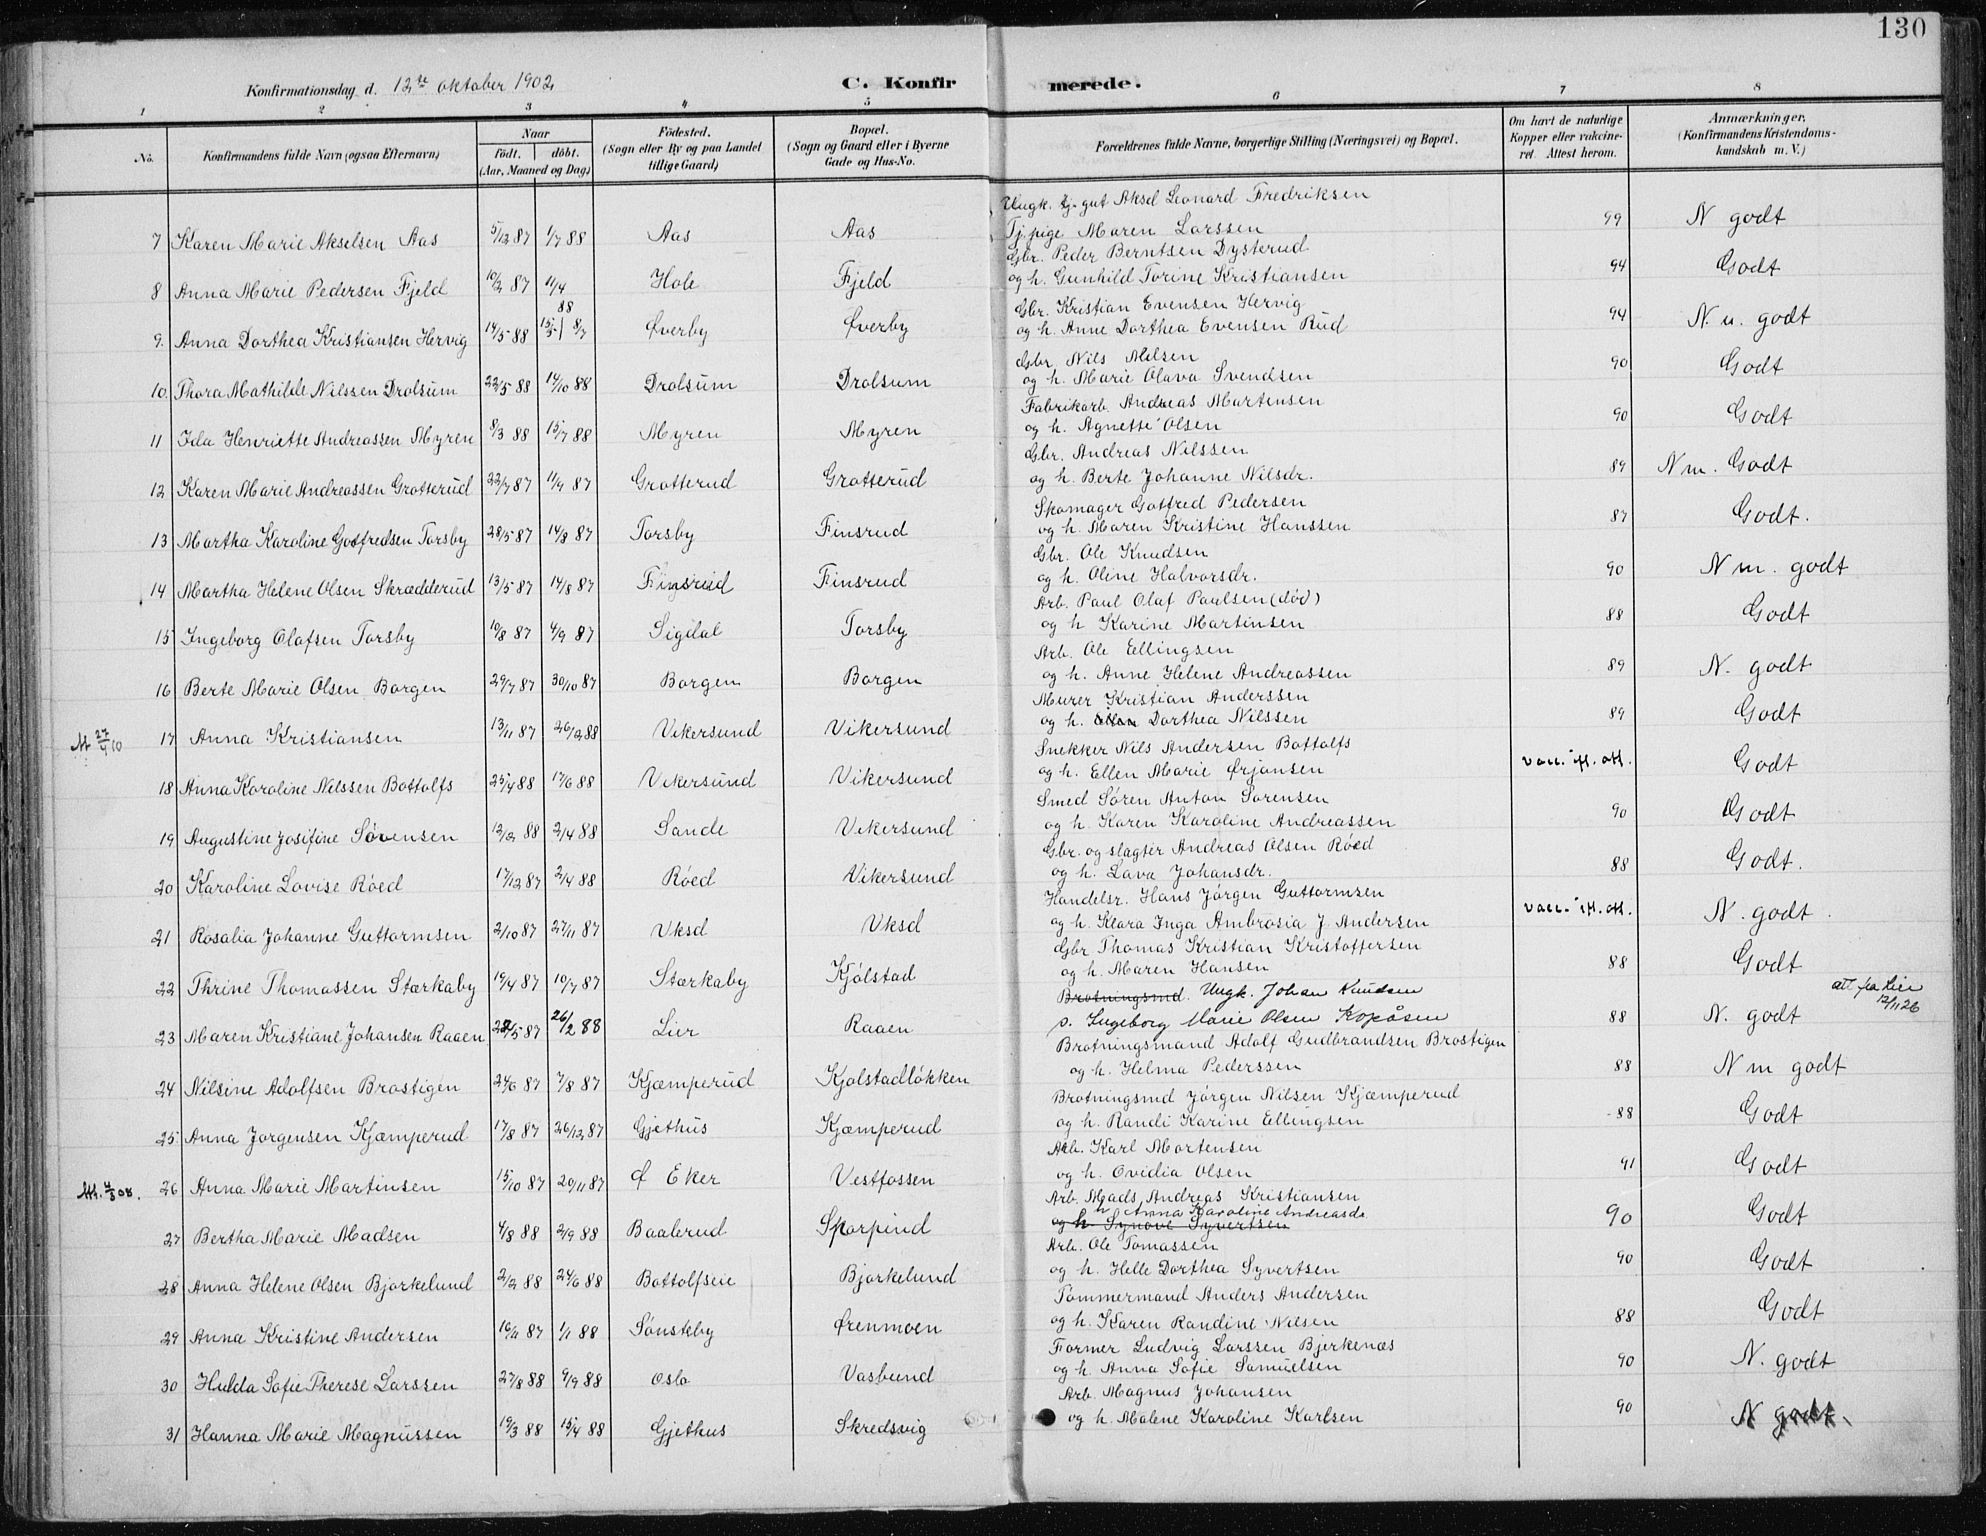 130
Konfirmationsdag d. 12te oktober 1902
C. Konfir merede.
1 2 3 4 5 6 7 8
No. Konfirmandens fulde Navn (ogsaa Efternavn) Naar født. døbt. (Aar, Maaned og Dag) Fødested. (Sogn eller By og paa Landet tillige Gaard) Bopæl. (Sogn og Gaard eller i Byerne Gade og Hus-No. Forældrenes fulde Navne, borgerlige Stilling (Næringsvei) og Bopæl. Om havt de naturlige Kopper eller vakcineret. Attest herom. Anmærkninger, (Konfirmandens Kristendomskundskab m. V.)
Ungk. tj. gut Aksel Leonard Fredriksen
7 Karen Marie Akselsen Aas 5/12 87 1/7 88 Aas Aas Tj. pige Maren Larssen 99 N godt
Gbr. Peder Berntsen Dysterud
8 Anna Marie Pedersen Fjeld 10/2 87 11/4 88 Hole Fjeld og h. Gunhild Torine Kristiansen 94 Godt
Gbr. Kristian Evensen Hervig
9. Anna Dorthea Kristiansen Hervig 14/5 88 15/5 | 8/7 Øverby Øverby og h. Anne Dorthea Evensen Rud 94 N. u. godt
Gbr. Nils Nilsen
10. Thora Mathilde Nilssen Drolsum 22/5 88 14/10 88 Drolsum Drolsum og h. Marie Olava Svendsen 90 Godt
Fabrikarb. Andreas Martensen
11 Ida Henriette Andreassen Myren 8/3 88 15/7 88 Myren Myren og h. Agnette Olsen 90 Godt
Gbr. Andreas Nilssen
12 Karen Marie Andreassen Grotterud 22/7 87 11/9 87 Grotterud Grotterud og h. Berte Johanne Nilsdr. 89 N m. Godt
Skomager Gotfred Pedersen
13 Martha Karoline Godfredsen Torsby 28/5 87 14/8 87 Torsby Finsrud og h. Maren Kristine Hanssen 87 Godt.
Gbr. Ole Knudsen
14 Martha Helene Olsen Skrædderud 13/5 87 14/8 87 Finsrud Finsrud og h. Oline Halvorsdr. 90 N m. godt
Arb. Paul Olaf Paulsen (død)
15 Ingeborg Olafsen Torsby 10/8 87 4/9 87 Sigdal Torsby og h Karine Martinsen 88 Godt
Arb. Ole Ellingsen
16 Berte Marie Olsen Borgen 29/7 87 30/10 87 Borgen Borgen og h. Anne Helene Andreassen 89 N. godt
Murer Kristian Anderssen
Att 27/4 10 17 Anna Kristiansen 13/11 87 26/2 88 Vikersund Vikersund og h. Dorthea Nilssen 89 Godt
Snekker Nils Andersen Bottolfs
18 Anna Karoline Nilssen Bottolfs 25/4 88 17/6 88 Vikersund Vikersund og h. Ellen Marie Ørjansen vacc. if. att. Godt
Smed Søren Anton Sørensen
19 Augustine Josifine Sørensen 12/2 88 2/4 88 Sande Vikersund og h. Karen Karoline Andreassen 90 Godt
Gbr. og slagter Andreas Olsen Røed
20 Karoline Lovise Røed 17/12 87 2/4 88 Røed Vikersund og h. Lava Johansdr. 88 Godt.
Handelsr. Hans Jørgen Guttormsen
21 Rosalia Johanne Guttormsen 2/10 87 27/11 87 Vksd Vksd og h. Klara Inga Ambrosia J. Andersen vacc. if. att. N. godt.
Gbr Thomas Kristian Kristoffersen
22 Thrine Thomassen Stærkaby 19/4 87 10/7 87 Stærkaby Kjølstad og h. Maren Hansen 88 Godt
Brotningsmd. Ungk. Johan Knudsen att fra Lier 12/11 26
23 Maren Kristiane Johansen Raaen 22/5 87 26/2 88 Lier Raaen p. Ingeborg Marie Olsen Kopåsen 88 N. godt
Brotningsmand Adolf Gudbrandsen Brostigen
24 Nilsine Adolfsen Brostigen 24/6 87 7/8 87 Kjæmperud Kjølstadløkken og h. Helma Pederssen 88 N m godt
Brotningsmd Jørgen Nilsen Kjæmperud
25 Anna Jørgensen Kjæmperud 17/8 87 26/12 87 Gjethus Kjæmperud og h. Randi Karine Ellingsen 88 Godt
Arb. Karl Martensen
Att. 4/5 08. 26 Anna Marie Martinsen 15/10 87 20/11 87 Ø Eker Vestfossen og h. Ovidia Olsen 91 Godt
Arb. Mads Andreas Kristiansen
h Anna Karoline Andreasdr
27 Bertha Marie Madsen 4/8 88 2/9 88 Baalerud Sporpind og h. Synøve Syvertsen 90 Godt
Arb. Ole Tomassen
28 Anna Helene Olsen Bjørkelund 2/2 88 24/6 88 Bottolfseie Bjørkelund og h. Helle Dorthea Syvertsen 90 Godt
Tømmermand Anders Andersen
29 Anna Kristine Andersen 16/11 87 1/1 88 Sønsteby Ørenmoen og h. Karen Randine Nilsen 88 Godt
Former Ludvig Larssen Bjerkenæs
30 Hulda Sofie Therese Larssen 27/8 88 9/9 88 Oslo Vasbund og h. Anna Sofie Samuelsen 90 N. godt
Arb. Magnus Johansen
31 Hanna Marie Magnussen 19/3 88 15/4 88 Gjethus Skredsvig og h. Malene Karoline Karlsen 90 N godt.